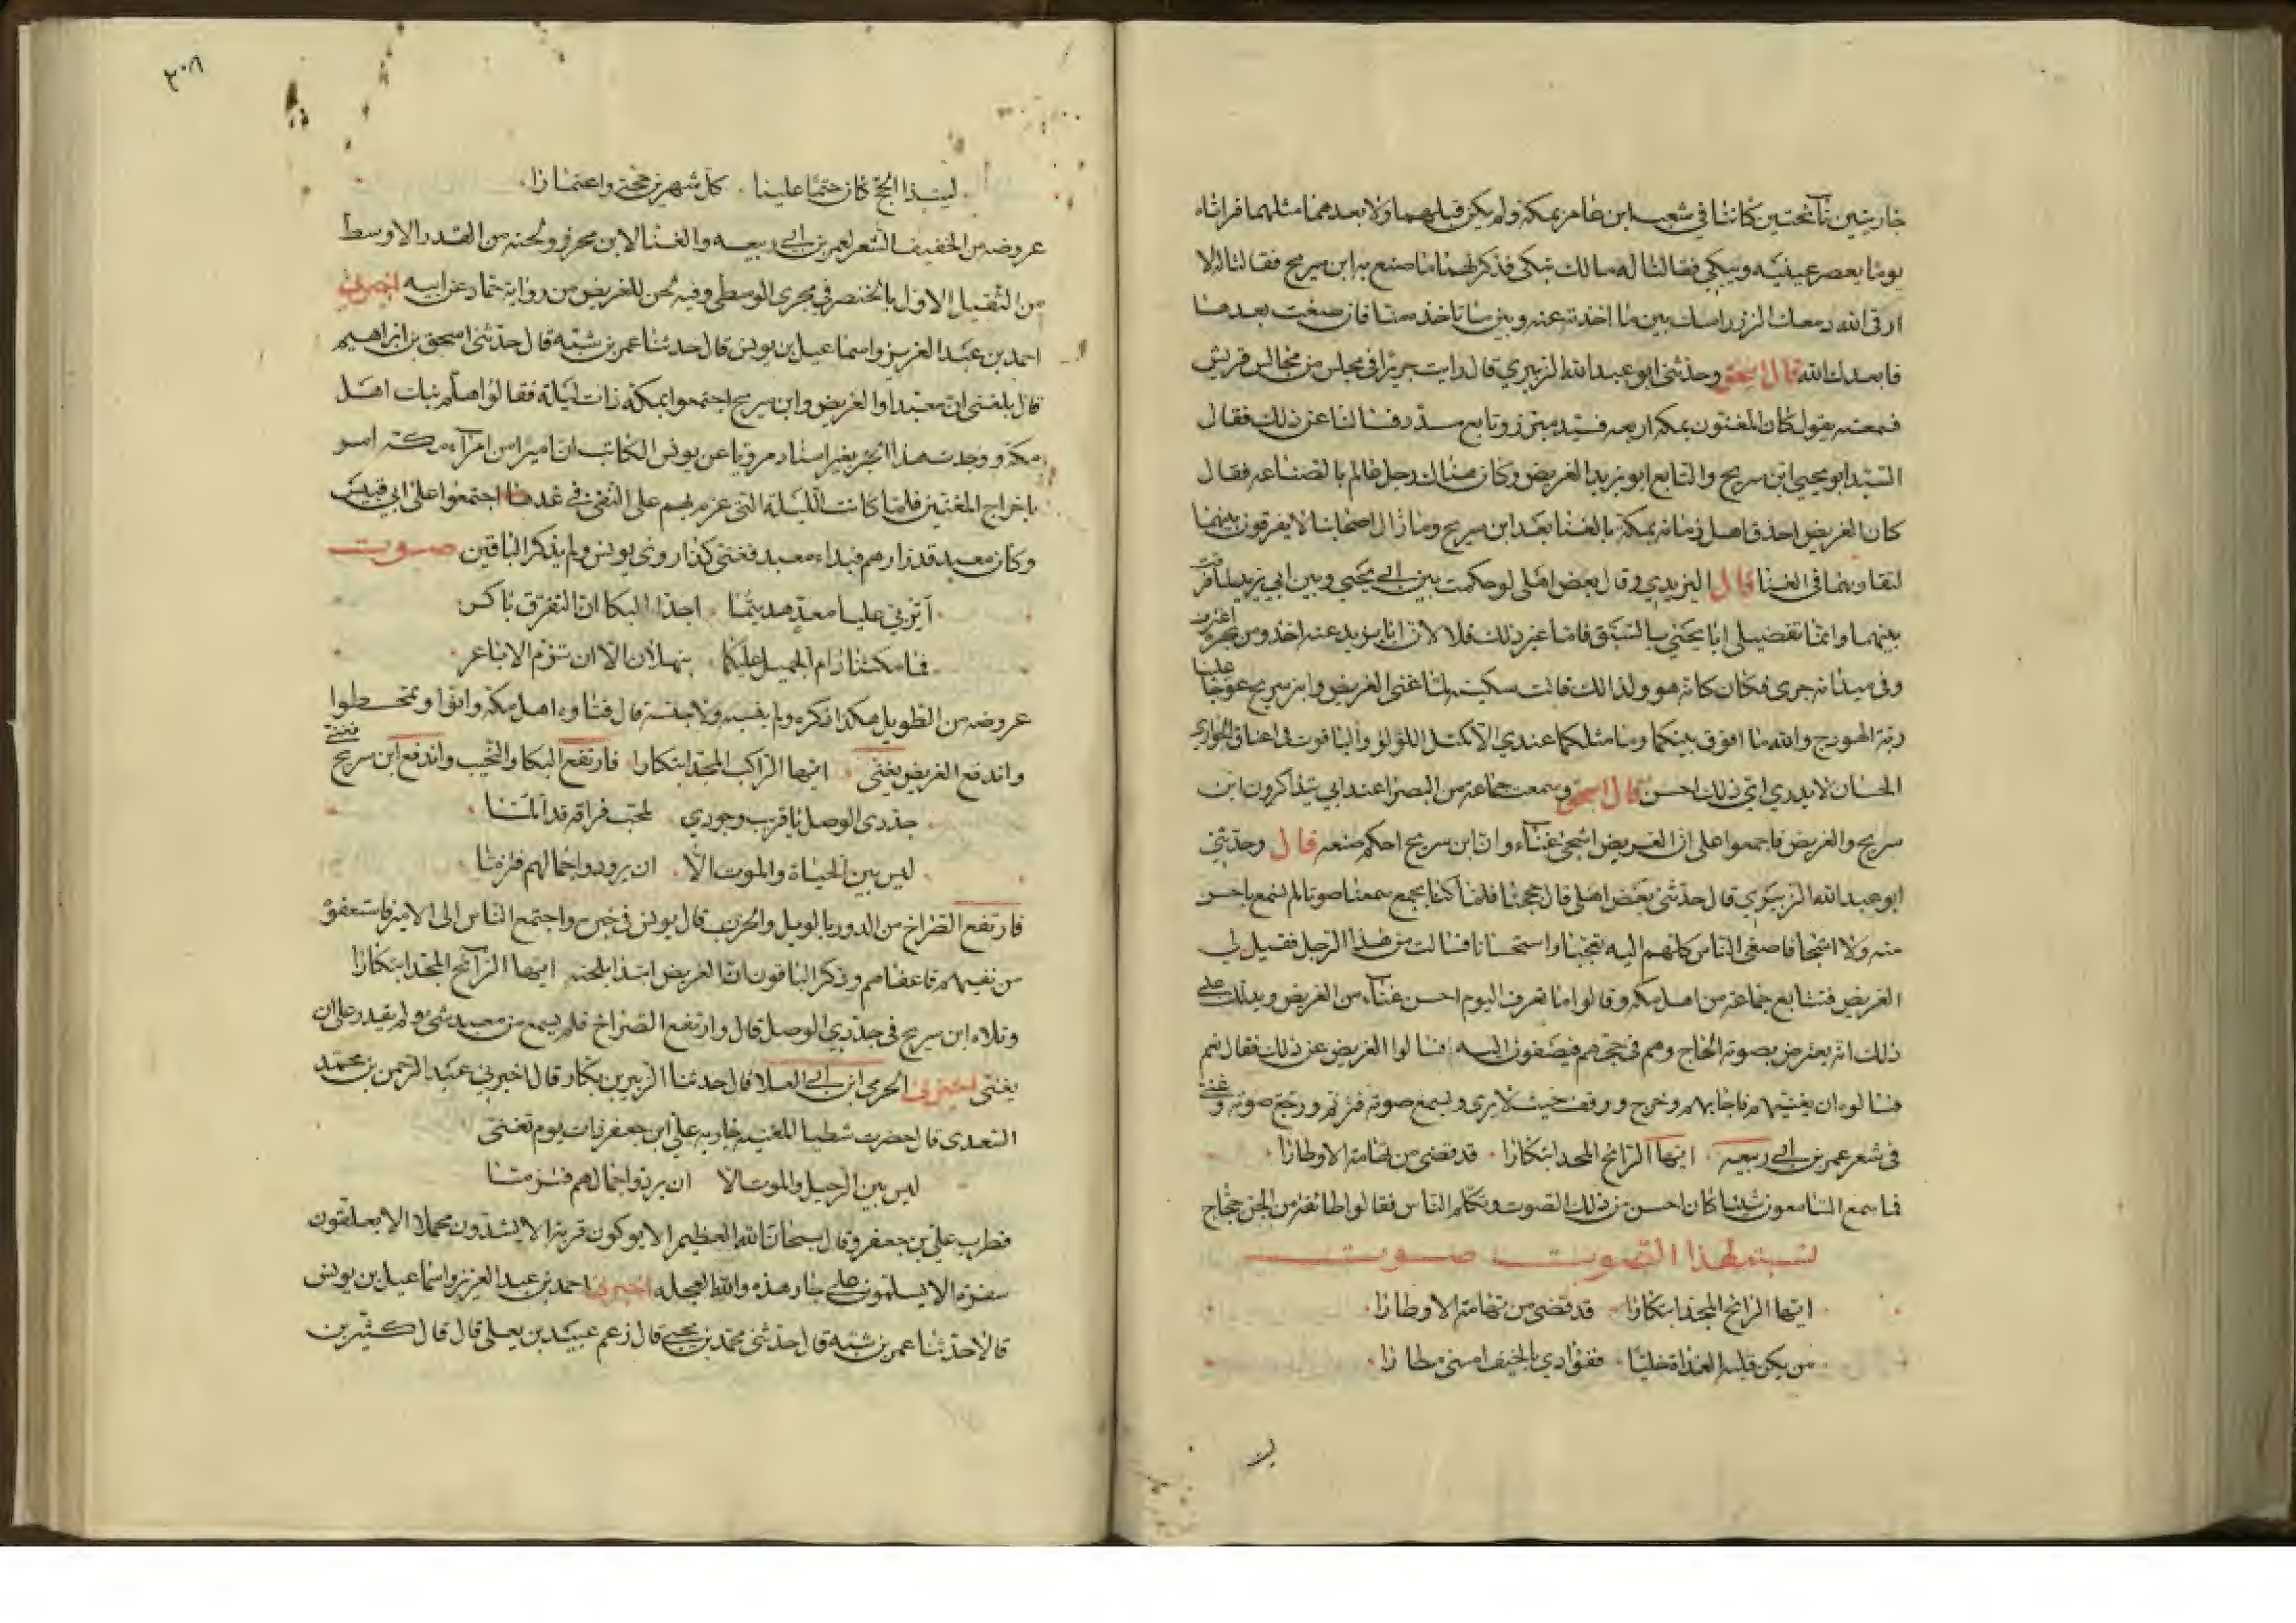 جاريتين نائحتين كانتا في شعب ابن عامر بمكة ولم يكن قبلهما ولا بعدهما مثلهما فراتاه
يوما يعصر عينيه ويبكي فقالتا له مالك تبكي فذكر لهما ما صنع به ابن سريج فقالتا له لا
ارقى الله دمعك الزز راسك بين ما اخذته عنه وبين ما تاخذه منا فان ضعت بعدها
فابعدك الله قال اسحق وحدثني ابو عبد الله الزبيري قال رايت جريرا في مجلس من مجالس قريش
فسمعته يقول كان المغنون بمكة اربعه فسيد مبرز وتابع مسدد فسالنا عن ذلك فقال
السيد ابو يحيى ابن سريج والتابع ابو يزيد الغريض وكان هناك رجل عالم بالصناعه فقال
كان الغريض احذق اهل زمانه بمكة بالغنا بعد ابن سريج وما زال اصحابنا لا يفرقون بينهما
لتقاربهما في الغنا قال الزبيدي وقال بعض اهلي لو حكمت بين ابي يحيى وبين ابي يزيد لما فرقت
بينهما وانما تفضيلي ابا يحيى بالسبق فاما غير ذلك فلا لان ابا يزيد عنه اخذ ومن بحره اغترف
وفي ميدانه جرى فكان كانه هو ولذلك قالت سكينه لما غنى الغريض وابن سريج عوجا علينا
ربة الهودج والله ما افرق بينكما وما مثلكما عندي الا كمثل اللؤلؤ والياقوت في اعناق الجواري
الحسان لا يدري اي ذلك احسن قال اسحق وسمعت جماعة من البصرا عند ابي يتذاكرون ابن
سريج والغريض فاجمعوا على ان الغريض اشجى غناء وان ابن سريج احكم صنعه قال وحدثني
ابو عبد الله الزبيري قال حدثني بعض اهلي قال حججنا فلما كنا بجمع سمعنا صوتا لم نسمع باحسن
منه ولا اشجا فاصغى الناس كلهم اليه تعجبا واستحسانا فسالت من هذا الرجل فقيل لي
الغريض فتتابع جماعة من اهل مكه وقالوا ما نعرف اليوم احسن غناء من الغريض ويدلك على
ذلك انه يعترض بصوته الحاج وهم في حجهم فيصغون اليه فسالوا الغريض عن ذلك فقال نعم
فسالوه ان يغنيهم فاجابهم وخرج ووقف حيث لا يرى ويسمع صوته فترنم ورجع صوته وغنى
في شعر عمر بن ابي ربيعه ايها الرائح المجد ابتكارا قد قضى من تهامة الاوطارا
فما سمع السامعون شيئا كان احسن من ذلك الصوت وتكلم الناس فقالوا طائفة من الجن حجاج
نسبة هذا الصوت صوت
ايها الرائح المجد ابتكارا قد قضى من تهامة الاوطارا
من يكن قلبه الغداة خليا ففؤادي بالخيف امسى مطارا
ليت
٣٠٨
ليت ذا الحج كان حتما علينا كل شهرين حجة واعتمارا
عروضه من الخفيف الشعر لعمر بن ابي ربيعه والغنا لابن محرز ولحنه من القدر الاوسط
من الثقيل الاول بالخنصر في مجرى الوسطى وفيه لحن للغريض من رواية حماد عن ابيه اخبرني
احمد بن عبد العزيز واسماعيل بن يونس قال حدثنا عمر بن شبه قال حدثني اسحق بن ابراهيم
قال بلغني ان معبدا والغريض وابن سريج اجتمعوا بمكة ذات ليلة فقالوا هلم نبك اهل
مكة ووجدت هذا الخبر بغير اسناد مرويا عن يونس الكاتب ان اميرا من امراء مكة امر
باخراج المغنين فلما كانت الليلة التي عزم بهم على النفي في غدها اجتمعوا على ابي قبيس
وكان معبد قد زارهم فبداء معبد فغنى كذا روى يونس ولم يذكر الباقين صوت
اتربي عليا معد هديتما اجدا البكا ان التفرق باكر
فما مكثنا دام الجميل عليكما بثهلان الا ان تزم الاباعر
عروضه من الطويل هكذا ذكره ولم ينسبه ولا جنسه قال فتاوه اهل مكة وانوا وتمخطوا
واندفع الغريض يغني ايها الراكب المجد ابتكارا فارتفع البكا والنحيب واندفع ابن سريج فغنى
جددي الوصل يا قريب وجودي لمحب فراقه قد المتا
ليس بين الحياة والموت الا ان يردوا جمالهم فتزمتا
فارتفع الصراخ من الدور بالويل والحرب قال يونس في خبره واجتمع الناس الى الامير فاستعفوه
من نفيهم فاعفاهم وذكر الباقون ان الغريض ابتدا بلحنه ايها الرائح المجد ابتكارا
وتلاه ابن سريج في جددي الوصل قال وارتفع الصراخ فلم يسمع من معبد شي ولم يقدر على ان
يغني اخبرني الحرمي ابن ابي العلا قال حدثنا الزبير بن بكار قال اخبرني عبد الرحمن بن محمد
السعدي قال حضرت شطبا المغنيه جارية علي ابن جعفر ذات يوم تغني
ليس بين الرحيل والموت الا ان يردوا جمالهم فتزمتا
فطرب علي بن جعفر وقال سبحان الله العظيم الا يوكون قربة الا يشدون محملا الا يعلقون
سفرة الا يسلمون على جار هذه والله العجله اخبرني احمد بن عبد العزيز واسماعيل بن يونس
قالا حدثنا عمر بن شبه قال حدثني محمد بن يحيى قال زعم عبيد بن يعلى قال قال كثير بن